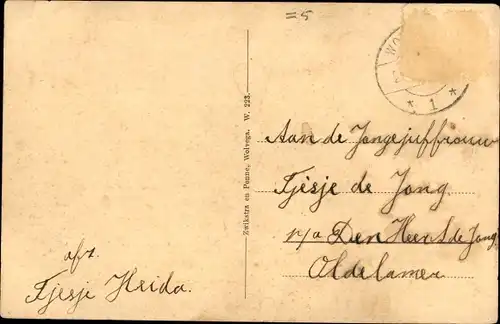 =5
WO
* 1 *
Aan de Jongejuffrouw
Tjèsje de Jong.
p/a Den Heer S de Jong
Oldelamer
afz.
Tjesje Heida.
Zwikstra en Penne, Wolvega. W. 223.